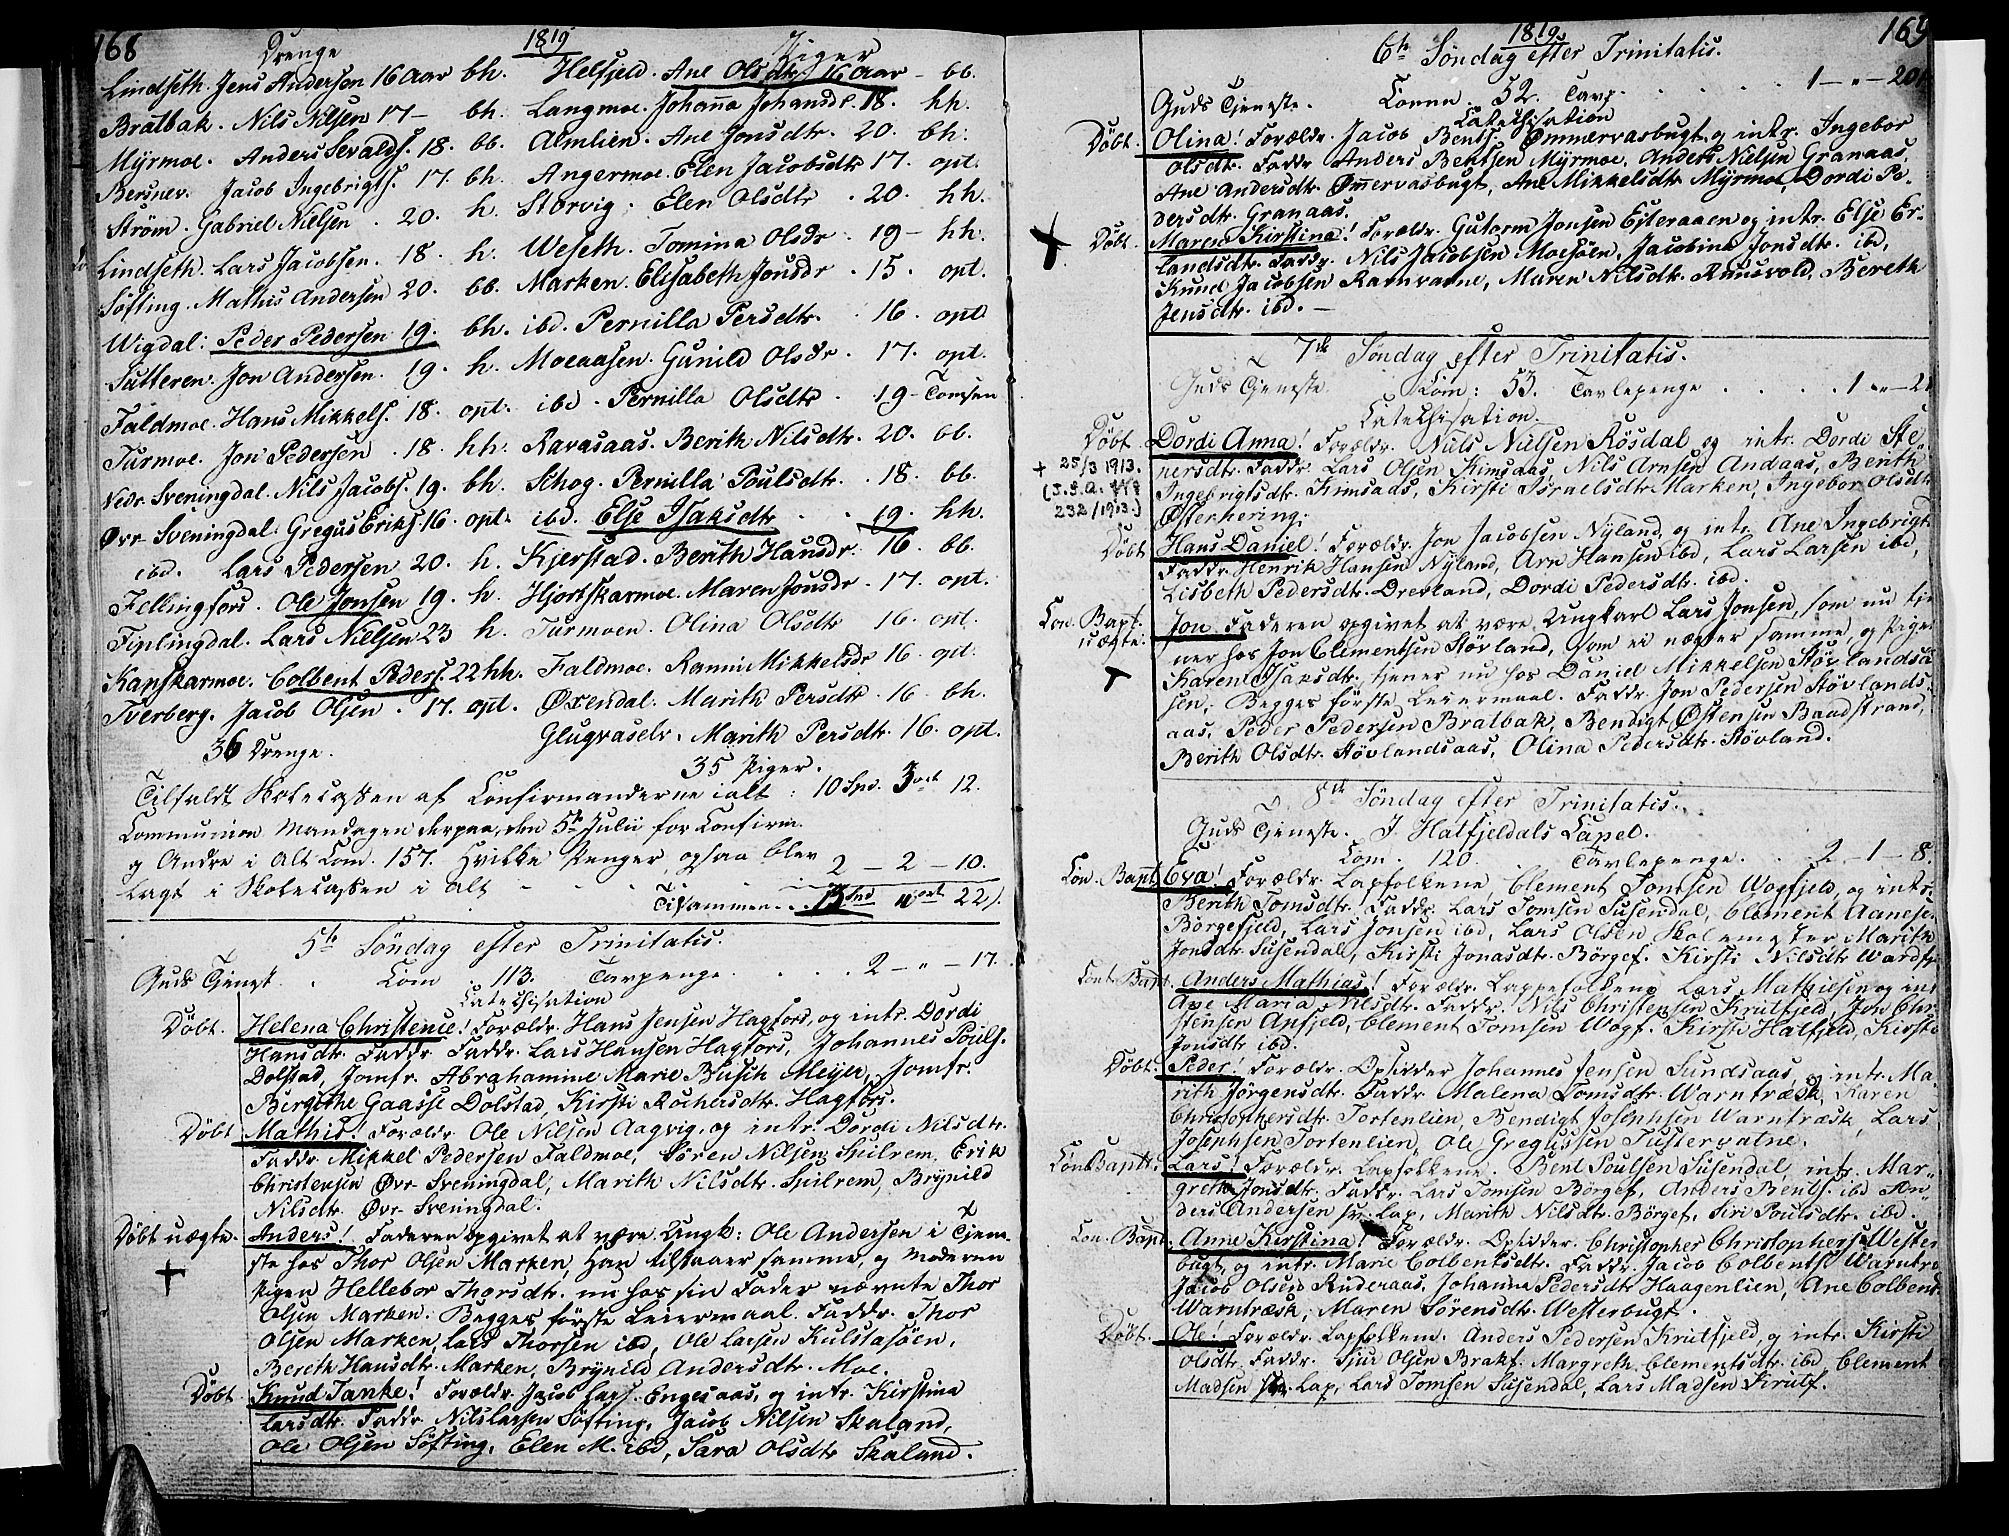 168
1819
Drenge Piger
Lindseth. Jens Andersen 16 Aar bh. Helfjeld. Ane Olsdtr 16 Aar - bb.
Bratbak. Nils Nilsen 17 - bh. Langmoe. Johanna Johansdr. 18. hh.
Myrmoe. Anders Sevalds. 18. bb. Almlien. Ane Jonsdtr. 20. bh.
Bersnev. Jacob Ingebrigts. 17. bh. Angermoe. Elen Jacobsdtr 17. opt.
Ström. Gabriel Nielsen. 20. h. Storvig. Elen Olsdtr. 20. hh.
Lindseth. Lars Jacobsen. 18. h. Weseth. Tomina Olsdr. 19 - hh.
Söfting. Mathis Andersen 20. bb. Marken. Elisabeth Jonsdr. 15. opt.
Wigdal: Peder Pedersen 19. bh. ibd. Pernilla Persdtr. 16. opt
Sutteren. Jon Andersen. 19. h. Moeaasen. Gunild Olsdr. 17. opt.
Faldmoe. Hans Mikkels. 18. opt. ibd. Pernilla Olsdtr. 19 - Tomsen
Turmoe. Jon Pedersen. 18. hh. Ravasaas. Berith Nilsdtr. 20. bb.
Nedr. Sveningdal. Nils Jacobs. 19. bh. Schog. Pernilla Poulsdtr. 18. bb.
Övr Sveningdal. Gregus Eriks. 16. opt. ibd. Else Isaksdtr 19. hh.
ibd. Lars Pedersen 20. h. Kjerstad. Berith Hansdr. 16. bb.
Fellingfors. Ole Jonsen 19. h. Hjortskarmoe. Maren Jonsdr. 17. opt.
Fiplingdal. Lars Nielsen 23 h. Turmoen. Olina Olsdtr 16. opt.
Kapskarmoe. Colbent Peders. 22 hh. Faldmoe. Ranni Mikkelsdr 16. opt.
Tverberg. Jacob Olsen. 17. opt. Öxendal. Marith Persdtr. 16. bh.
Glugvaselv. Marith Persdtr. 16. opt.
36 Drenge. 35 Piger.
Tilfaldt Skolecassen af Confirmanderne ialt: 10 Spd. 3 ort 12.
Communion Mandagen derpaa, den 5te Julii for Confirm.
og Andre i alt Com. 157. Hvilke Penger ogsaa blev 2 - 2 - 10.
lagt i Skolecassen i alt
Tilsammen 13 Spd 4 ort 22 s.
5te Söndag efter Trinitatis.
Guds Tienst. Com 113. Tavpenge. 2 - " - 17.
Catechisation
Döbt. Helena Christence! Forældr. Hans Jensen Hagfors, og intr. Dordi
Hansdtr. Faddr. Faddr. Lars Hansen Hagfors, Johannes Pouls.
Dolstad, Jomfr. Abrahamine Marie Busch Meyer, Jomfr.
Bergithe Gaasse Dolstad, Kirsti Rochersdtr. Hagfors.
Döbt Mathis! Forældr. Ole Nilsen Aagvig, og intr. Dordi Nilsdtr.
Faddr. Mikkel Pedersen Faldmoe, Sören Nilsen Spilrem, Erik
Christensen Övr Sveningdal, Marith Nilsdtr. Spilrem, Brynild
Nilsdtr. Övr Sveningdal.
Döbt uægte. Anders! Faderen opgivet at være Ungk: Ole Andersen i Tjene-
ste hos Thor Olsen Marken, han tilstaaer samme, og Moderen
Pigen Hellebor Thorsdtr. nu hos sin Fader nævnte Thor
Olsen Marken. Begges förste Leiermaal. Faddr. Thor
Olsen Marken, Lars Thorsen ibd, Ole Larsen Kulstasöen,
Bereth Hansdtr. Marken, Brynild Andersdtr. Moe.
Döbt Knud Tanke! Forældr. Jacob Lars. Engesaas, og intr. Kirstina
Larsdtr. Faddr. Nils Larsen Söfting, Jacob Nilsen Skaland,
Ole Olsen Söfting, Elen M. ibd, Sara Olsdtr Skaland.
169
1819
6te Söndag efter Trinitatis.
Guds Tieneste. Comm. 52. Tavp. 1 - " - 20
Catechisation
Döbt. Olina! Forældr. Jacob Bents. Ömmervasbugt, og intr. Ingebor
Olsdtr. Faddr. Anders Bentsen Myrmoe, Anders Nielsen Granaas,
Ane Andersdtr. Ömervasbugt, Ane Mikkelsdtr Myrmoe, Dordi Pe-
dersdtr. Granaas.
Döbt. Maren Kirstina! Forældr. Gutorm Jonsen Esteraaen og intr. Else Er-
landsdtr. Faddr. Nils Jacobsen Moesöen, Jacobina Jonsdtr. ibd,
Knud Jacobsen Ramvatne, Maren Nilsdtr. Ruusvold, Bereth
Jensdtr. ibd. -
7de Söndag efter Trinitatis.
Guds Tieneste. Com: 53. Tavlepenge. 1 " - 2
Catechisation
Döbt. Dordi Anna! Forældr. Nils Nielsen Rösdal og intr. Dordi Ste-
+ 25/3 1913.
nersdtr. Faddr. Lars Olsen Kimsaas, Nils Arnsen Andaas, Berith
Ingebrigtsdtr. Kimsaas, Kirsti Israelsdtr Marken, Ingebor Olsdtr
232/1913.)
Österkering.
Döbt Hans Daniel! Forældr. Jon Jacobsen Nyland, og intr. Ane Ingebrigt
Faddr. Henrik Hansen Nyland, Arn Hansen ibd, Lars Larsen ibd,
Lisbeth Pedersdtr. Drevland, Dordi Pedersdtr. ibd.
Con. Bapt. uægte. Jon Faderen opgivet at være Ungkarl Lars Jonsen, som nu tie
ner hos Jon Clementsen Stövland, som ei nægter samme, og Pigen
Karen Isaksdtr. tjener nu hos Daniel Mikkelsen Stövlandsa
sen, Begges förste Leiermaal. Faddr. Jon Pedersen Stövlands-
aas, Peder Pedersen Bratbak, Bendigt Östensen Baadstrand,
Berith Olsdtr. Stövlandsaas, Olina Pedersdtr. Stövland.
8de Söndag efter Trinitatis.
Guds Tieneste. I Hatfjeldals Capel.
Com. 120. Tavlepenge. 2 - 1 - 8.
Con. Bapt. Eva! Forældr. Lapfolkene, Clement Tomsen Wogfjeld, og intr.
Berith Tomsdtr. Faddr. Lars Tomsen Susendal, Clement Aanese
Börgefjeld, Lars Jonsen ibd, Lars Olsen Skolemester, Marith
Jonsdtr. Susendal, Kirsti Jonasdtr. Börgef. Kirsti Nilsdtr Wardfj
Con. Bapt. Anders Mathias! Forældr. Lappefolkene Lars Mathiesen og int
Ane Maria Nilsdtr. Faddr. Nils Christensen Krutfjeld, Jon Chri
stensen Apfjeld, Clement Tomsen Wogf. Kirsti Hatfjeld, Kirsti
Jonsdtr ibd.
Döbt. Peder! Forældr. Opsidder Johannes Jensen Sundsaas, og intr. Ma-
rith Jörgensdtr. Faddr. Malena Tomsdtr. Warntræsk, Karen
Christophersdtr. Tortenlien, Bendigt Josephsen Warntræsk, Lars
Josephsen Tortenlien, Ole Gregussen Sustervatne.
Con. Bapt. Lars! Forældr. Lapfolkene. Bent Poulsen Susendal, intr. Mar-
greth Jonsdtr. Faddr. Lars Tomsen Börgef. Anders Bents. ibd An-
ders Andersen sv. Lap, Marith Nilsdtr. Börgef. Siri Poulsdtr. ibd.
Con. Bapt. Anne Kirstina! Forældr. Opsidder. Christopher Christophers. Wester
bugt, og intr. Marie Colbentsdtr. Faddr. Jacob Colbents. Warntr
Jacob Olsen Ruderaas. Johanna Pedersdtr Haagenlien, Ane Colbent
Warntræsk, Maren Sörensdtr. Westerbugt.
Döbt. Ole! Forældr. Lapfolkene. Anders Pedersen Krutfjeld, og intr. Kirsti
Olsdtr. Faddr. Sjur Olsen Brakf. Margreth Clementsdtr. ibd, Clement
Madsen sv. Lap, Lars Tomsen Susendal, Lars Madsen Krutf.